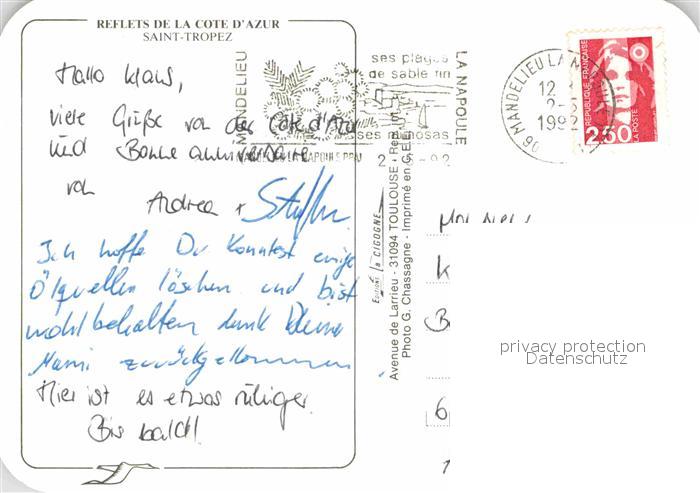 REFLETS DE LA COTE D'AZUR
SAINT-TROPEZ
Hallo Klaus,
viele Grüße von der Côte d'Azur
und Bonne anniversaire
von
Andrea + Steffen
Ich hoffe Du konntest einige
Ölquellen löschen und bist
wohlbehalten dank Deiner
Mami zurückgekommen
Hier ist es etwas ruhiger.
Bis bald!
MANDELIEU
ses plages
de sable fin
ses mimosas
LA NAPOULE
06 MANDELIEU LA
12
2-
1992
REPUBLIQUE FRANÇAISE
2,50
LA POSTE
Editions la CIGOGNE
Avenue de Larrieu - 31094 TOULOUSE
Photo G. Chassagne - Imprimé en C.E.E.
K
B
6
privacy protection
Datenschutz